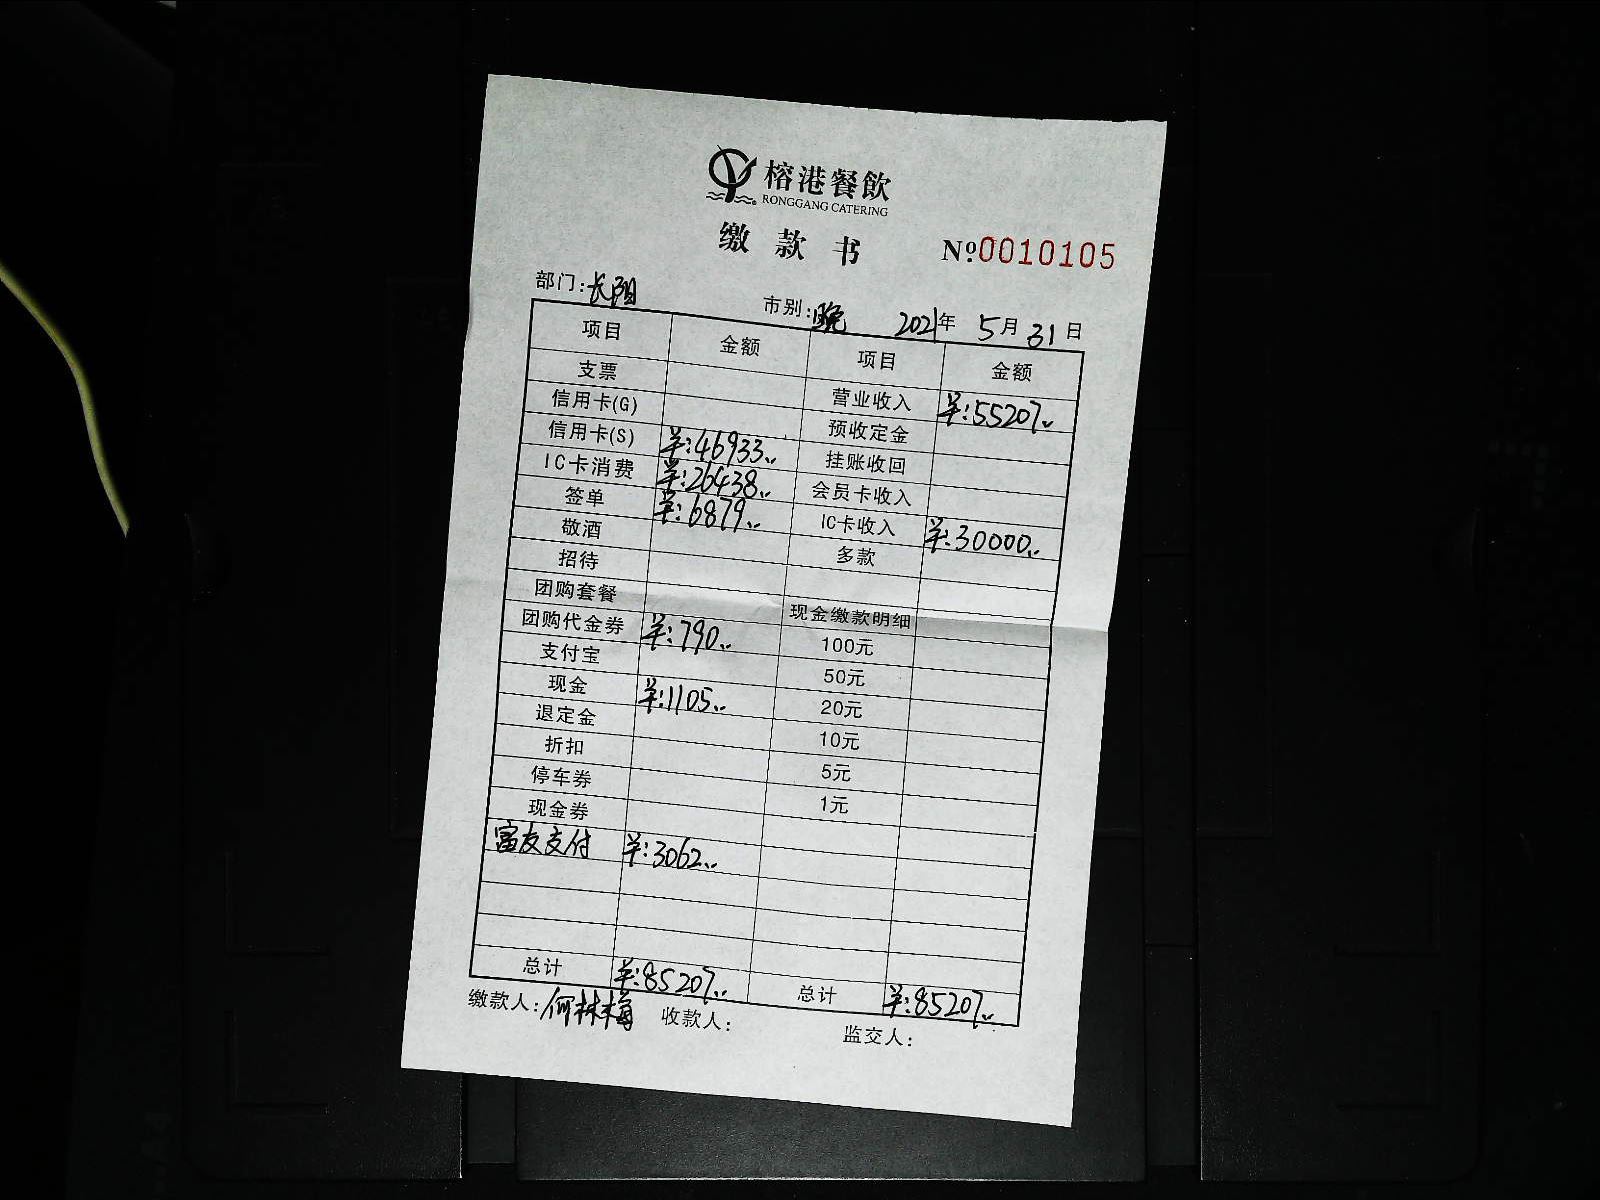 榕港餐飲
RONGGANG CATERING
缴款书 №0010105
部门:长阳 市别:晚 2021年 5月31日
项目 金额 项目 金额
支票 营业收入 羊:55207..
信用卡(G) 预收定金
信用卡(S) 羊:46933.. 挂账收回
IC卡消费 羊:26438.. 会员卡收入
签单 羊:6879.. IC卡收入 羊:30000..
敬酒 多款
招待
团购套餐 现金缴款明细
团购代金券 羊:790.. 100元
支付宝 50元
现金 羊:1105.. 20元
退定金 10元
折扣 5元
停车券 1元
现金券
富友支付 羊:3062..
总计 羊:85207.. 总计 羊:85207..
缴款人:何林梅 收款人: 监交人: